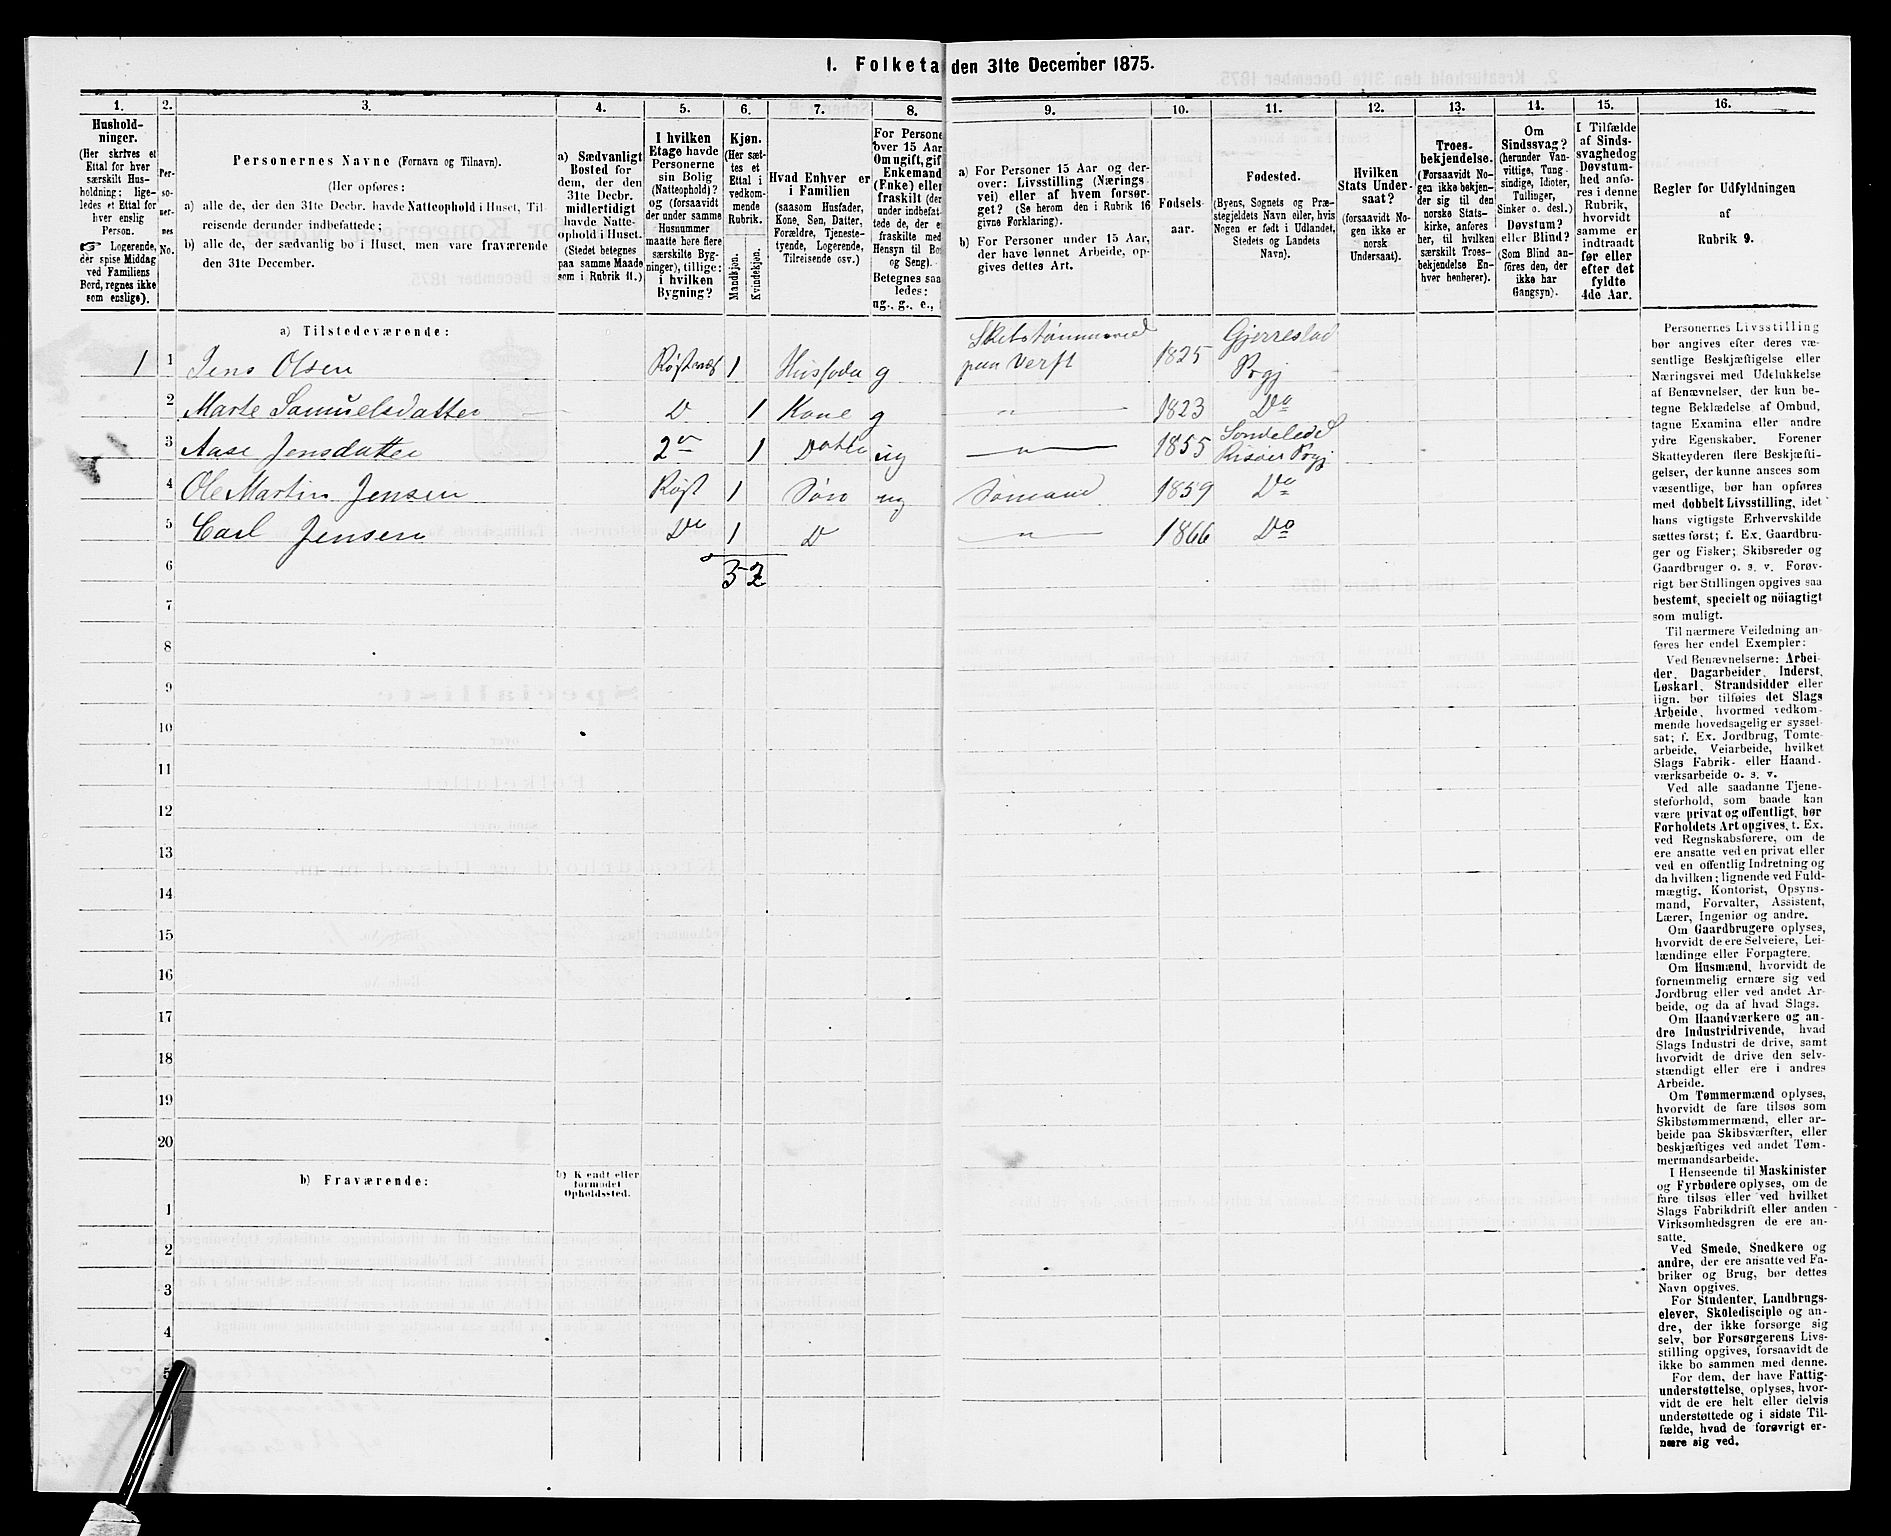 1. Folketa den 31te December 1875.
1. 2. 3. 4. 5. 6. 7. 8. 9. 10. 11. 12. 13. 14. 15. 16.
Hushold-
ninger.
(Her skrives et
Ettal for hver
særskilt Hus-
holdning; lige-
ledes et Ettal for
hver enslig
Person.
☞ Logerende,
der spise Middag
ved Familiens
Bord, regnes ikke
som enslige).
Per-
so-
ner-
nes
No.
Personernes Navne (Fornavn og Tilnavn).
(Her opføres:
a) alle de, der den 31te Decbr. havde Natteophold i Huset, Til-
reisende derunder indbefattede;
b) alle de, der sædvanlig bo i Huset, men vare fraværende
den 31te December.
a) Sædvanligt
Bosted for
dem, der den
31te Decbr.
midlertidigt
havde Natte-
ophold i Huset.
(Stedet betegnes
paa samme Maade
som i Rubrik 11.)
I hvilken
Etage havde
Personerne
sin Bolig
(Natteophold)?
og (forsaavidt
der under samme
Husnummer
maatte høre flere
særskilte Byg-
ninger), tillige:
i hvilken
Bygning?
Kjøn.
(Her sæt-
tes et
Ettal i
vedkom-
mende
Rubrik.
Mandkjøn.
Kvindekjøn.
Hvad Enhver er
i Familien
(saasom Husfader,
Kone, Søn, Datter,
Forældre, Tjeneste-
tyende, Logerende,
Tilreisende osv.)
For Persone
over 15 Aar
Om ugift, gif
Enkemand
(Enke) elle
fraskilt (der
under indbefat-
tede de, der e
fraskilte med
Hensyn til Bo
og Seng).
Betegnes saa
ledes:
ug., g., e.,
a) For Personer 15 Aar og der-
over: Livsstilling (Nærings-
vei) eller af hvem forsør-
get? (Se herom den i Rubrik 16
givne Forklaring).
b) For Personer under 15 Aar,
der have lønnet Arbeide, op-
gives dettes Art.
Fødsels-
aar.
Fødested.
(Byens, Sognets og Præ-
stegjeldets Navn eller, hvis
Nogen er født i Udlandet,
Stedets og Landets
Navn).
Hvilken
Stats Under-
saat?
(forsaavidt No-
gen ikke er
norsk
Undersaat).
Troes-
bekjendelse.
(Forsaavidt No-
gen ikke bekjen-
der sig til den
norske Stats-
kirke, anføres
her, til hvilken
særskilt Troes-
bekjendelse En-
hver henhører).
Om
Sindssvag?
(herunder Van-
vittige, Tung
sindige, Idioter,
Tullinger,
Sinker o. desl.)
Døvstum?
eller Blind?
(Som Blind an-
føres den, der
ikke har
Gangsyn).
I Tilfælde
af Sinds-
svaghed og
Døvstum-
hed anfø-
res i denne
Rubrik,
hvorvidt
samme er
indtraadt
før eller
efter det
fyldte
4de Aar.
Regler for Udfyldningen
af
Rubrik 9.
a) Tilstedeværende:
Skibstømmermd Gjerrestad
1 1 Jens Olsen 1 Husfader g paa Verft 1825 Prgj
2 Marte Samuelsdatter D 1 Kone g " 1823 Do
3 Aase Jensdatter 1 Datter ug " 1855 Søndeled Risøer Prgj
4 Ole Martin Jensen 1 Søn ug Sømand 1859 Do
5 Carl Jensen Do 1 D " 1866 Do
6 3 2
7
8
9
10
11
12
13
14
15
16
17
18
19
20
b) Fraværende:
b) Kjendt eller
formodet
Opholdssted.
1
2
3
4
5
Personernes Livsstilling
bør angives efter deres væ-
sentlige Beskjæftigelse eller
Næringsvei med Udelukkelse
af Benævnelser, der kun be-
tegne Beklædelse af Ombud,
tagne Examina eller andre
ydre Egenskaber. Forener
Skatteyderen flere Beskjæfti-
gelser, der kunne ansees som
væsentlige, bør han opføres
med dobbelt Livsstilling, idet
hans vigtigste Erhvervskilde
sættes først; f. Ex. Gaardbru-
ger og Fisker; Skibsreder og
Gaardbruger o. s. v. Forøv-
rigt bør Stillingen opgives saa
bestemt, specielt og nöiagtigt
som muligt.
Til nærmere Veiledning an-
føres her endel Exempler:
Ved Benævnelserne: Arbei-
der, Dagarbeider, Inderst,
Løskarl, Strandsidder eller
lign. bør tilføies det Slags
Arbeide, hvormed vedkom-
mende hovedsagelig er syssel-
sat; f. Ex. Jordbrug, Tomte-
arbeide, Veiarbeide, hvilket
Slags Fabrik- eller Haand-
værksarbeide o. s. v.
Ved alle saadanne Tjene-
steforhold, som baade kan
være privat og offentligt, bør
Forholdets Art opgives, t. Ex.
ved Regnskabsførere, om de
ere ansatte ved en privat eller
ved en offentlig Indretning og
da hvilken; lignende ved Fuld-
mægtig, Kontorist, Opsyns-
mand, Forvalter, Assistent,
Lærer, Ingeniør og andre.
Om Gaardbrugere oplyses,
hvorvidt de ere Selveiere, Lei-
lændinge eller Forpagtere.
Om Husmænd, hvorvidt de
fornemmelig ernære sig ved
Jordbrug eller ved andet Ar-
beide, og da af hvad Slags.
Om Haandværkere og an-
dre Industridrivende, hvad
Slags Industri de drive, samt
hvorvidt de drive den selv-
stændigt eller ere i andres
Arbeide.
Om Tømmermænd oplyses,
hvorvidt de fare tilsøs som
Skibstømmermænd, eller ar-
beide paa Skibsværfter, eller
beskjæftiges ved andet Tøm-
mermandsarbeide.
I Henseende til Maskinister
og Fyrbødere oplyses, om de
fare tilsøs eller ved hvilket
Slags Fabrikdrift eller anden
Virksomhedsgren de ere an-
satte.
Ved Smede, Snedkere og
andre, der ere ansatte ved Fa-
briker og Brug, bør dettes
Navn opgives.
For Studenter, Landbrugs-
elever, Skoledisciple og an-
dre, der ikke forsørge sig
selv, bør Forsørgerens Livs-
stilling opgives, forsaavidt de
ikke bo sammen med denne.
For dem, der have Fattig-
understøttelse, oplyses, hvor-
vidt de ere helt eller delvis
understøttede og i sidste Til-
fælde, hvad de forøvrigt er-
nære sig ved.